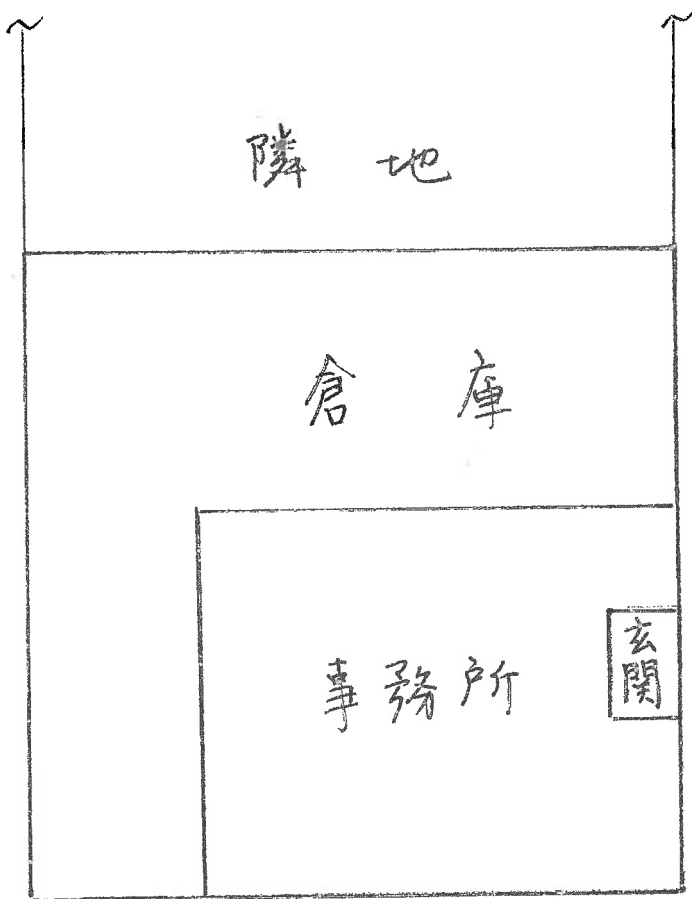 隣地
倉庫
事務所
玄関